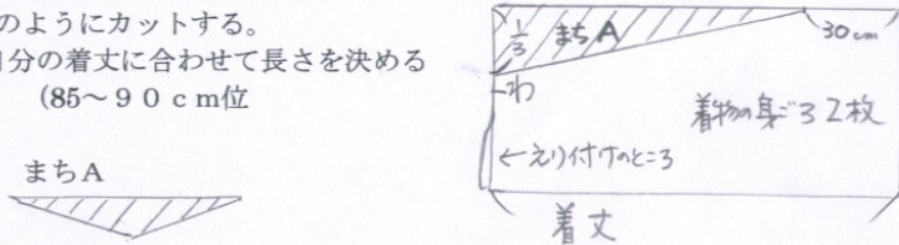 のようにカットする。
分の着丈に合わせて長さを決める
(85～９０ｃｍ位
まちA
1/3
まちA
30cm
わ
着物の身ごろ2枚
←えり付けのところ
着丈